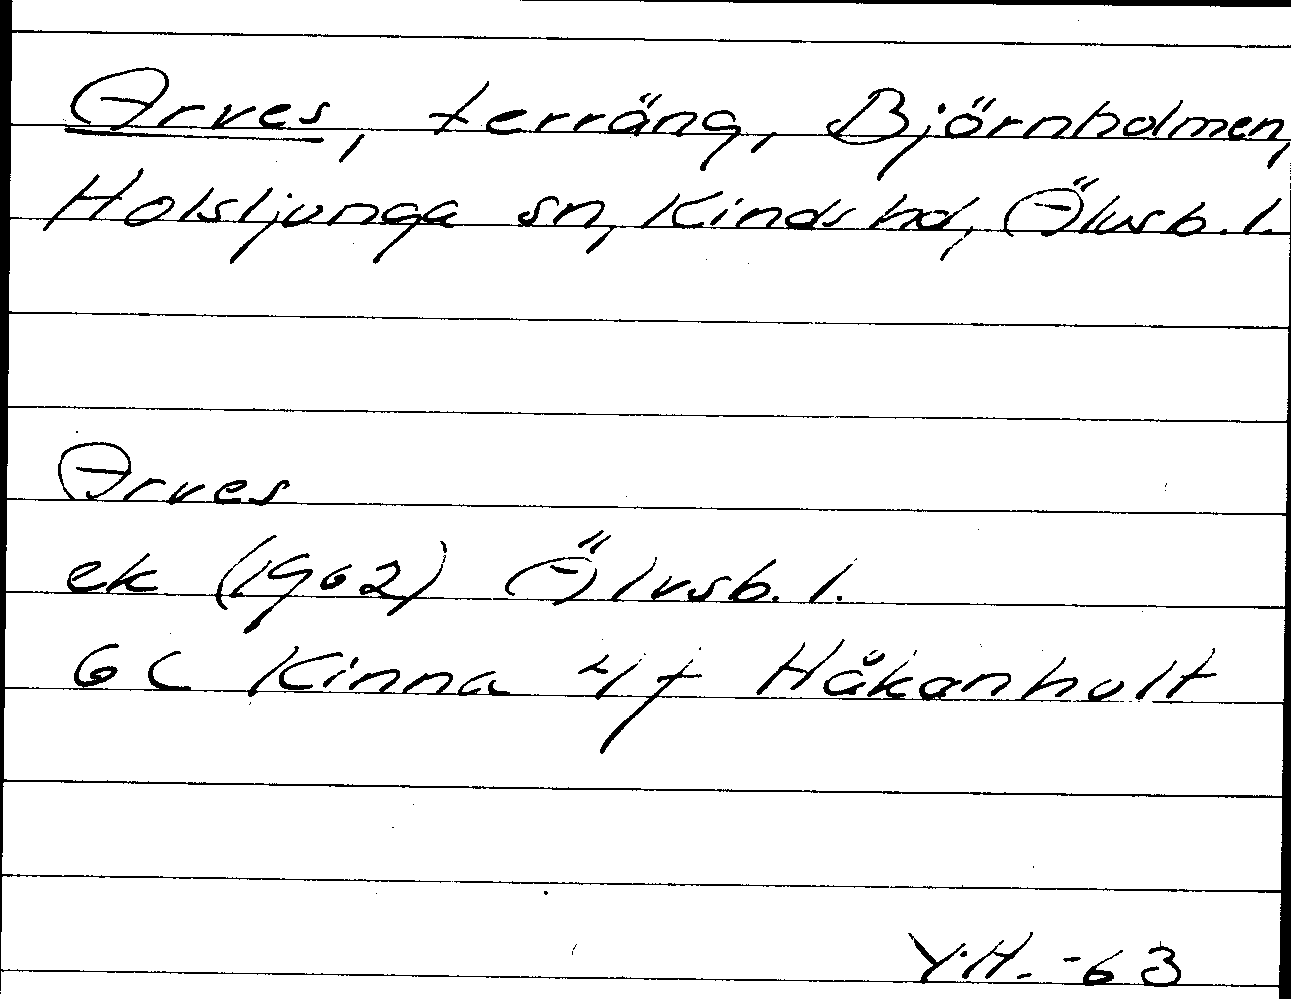 Arves, terräng, Björnholmen,
Holsljunga sn, Kinds hd, Älvsb. l.
Arves
ek (1962) Älvsb. l.
6C Kinna 4f Håkanhult
Y.H. -63